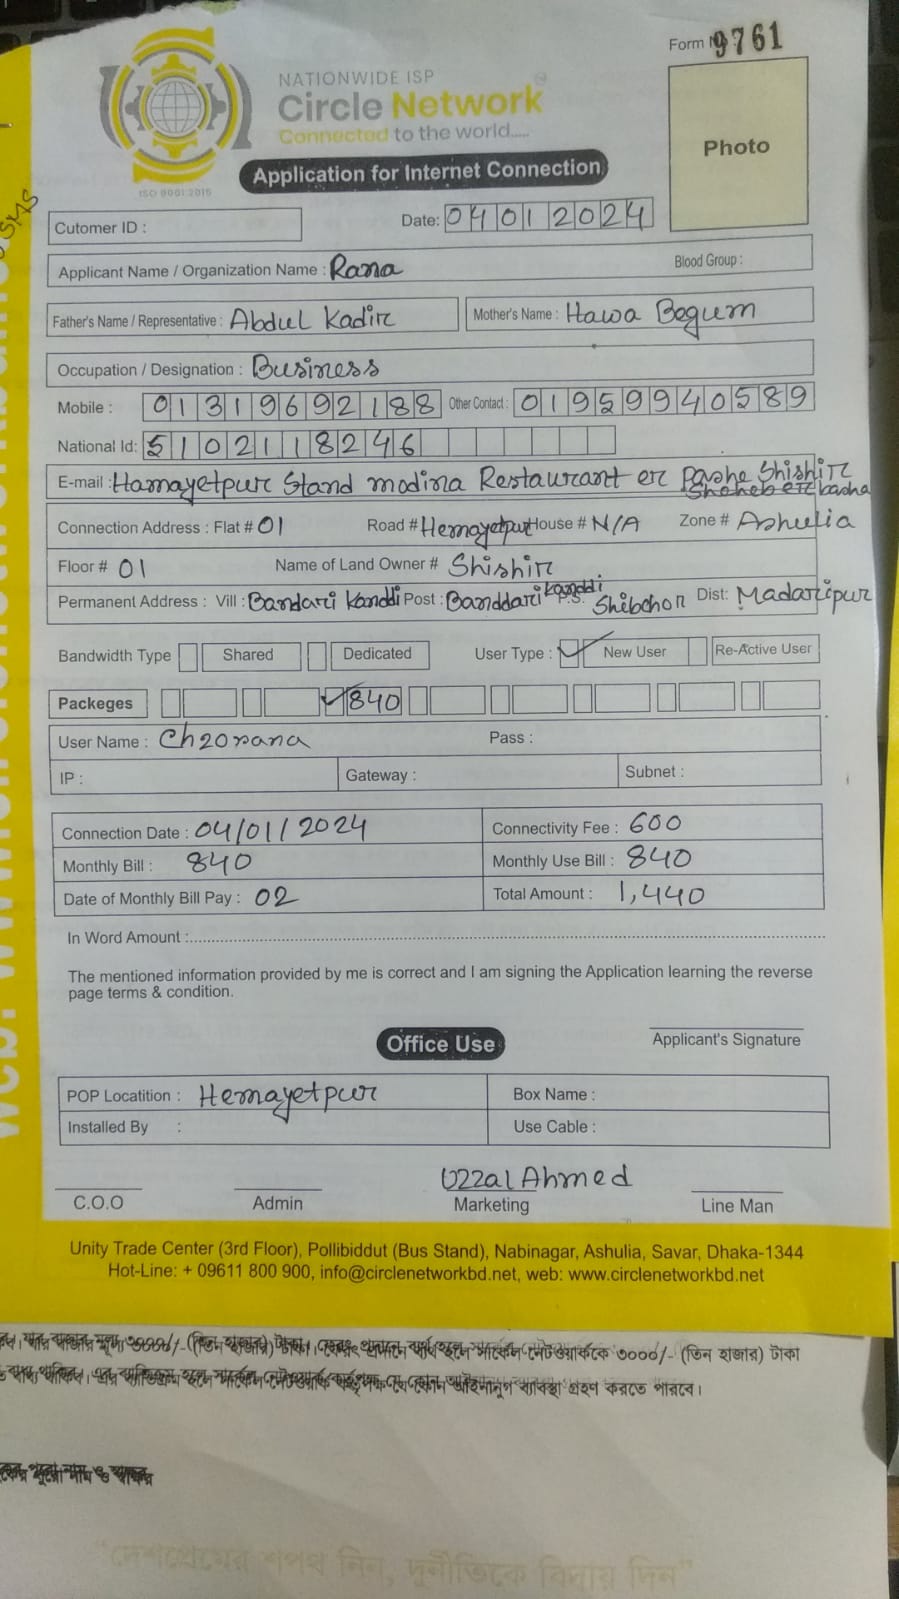 Form N 9761
NATIONWIDE ISP
Circle Network
Connected to the world.....
ISO 9001:2015
Application for Internet Connection
Photo
SMS
Cutomer ID :
Date: 04012024
Applicant Name / Organization Name : Rana Blood Group :
Father's Name / Representative : Abdul Kadir Mother's Name : Hawa Begum
Occupation / Designation : Business
Mobile : 01319692188 Other Contact : 01959940589
National Id: 5102118246
E-mail : Hamayetpur Stand modina Restaurant er pashe Shishir
Shaheb er basha
Connection Address : Flat # 01 Road # Hemayetpur House # N/A Zone # Ashulia
Floor # 01 Name of Land Owner # Shishir
Permanent Address : Vill : Bandari Kanddi Post : Banddari kanddi P.S. Shibchor Dist: Madaripur
Bandwidth Type Shared Dedicated User Type : New User Re-Active User
Packeges 840
User Name : Ch20rana Pass :
IP : Gateway : Subnet :
Connection Date : 04/01/2024 Connectivity Fee : 600
Monthly Bill : 840 Monthly Use Bill : 840
Date of Monthly Bill Pay : 02 Total Amount : 1,440
In Word Amount :
The mentioned information provided by me is correct and I am signing the Application learning the reverse
page terms & condition.
Applicant's Signature
Office Use
POP Locatition : Hemayetpur Box Name :
Installed By : Use Cable :
Uzzal Ahmed
C.O.O Admin Marketing Line Man
Unity Trade Center (3rd Floor), Pollibiddut (Bus Stand), Nabinagar, Ashulia, Savar, Dhaka-1344
Hot-Line: + 09611 800 900, info@circlenetworkbd.net, web: www.circlenetworkbd.net
৩০০০/- (তিন হাজার) টাকা
ব্যবস্থা গ্রহণ করতে পারবে।
"দেশপ্রেমের শপথ নিন, দুর্নীতিকে বিদায় দিন"